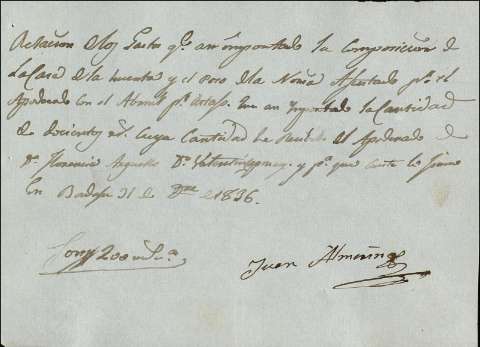 Relacion de los Gastos qe. an importado la Composicion de
la Casa de la huerta y el Poso de la Noria Ajustado pr. el
Apoderado con el Albañil pr.
que an Importado la Cantidad
de docientos rs. Cuya Cantidad he Recibido del Apoderado de
Dn. Florencio Dn. y pa. que coste lo firmo
en Badajoz 31 de Dbre. de 1836.
Son 200 rs. Vn.
Juan Almeiria